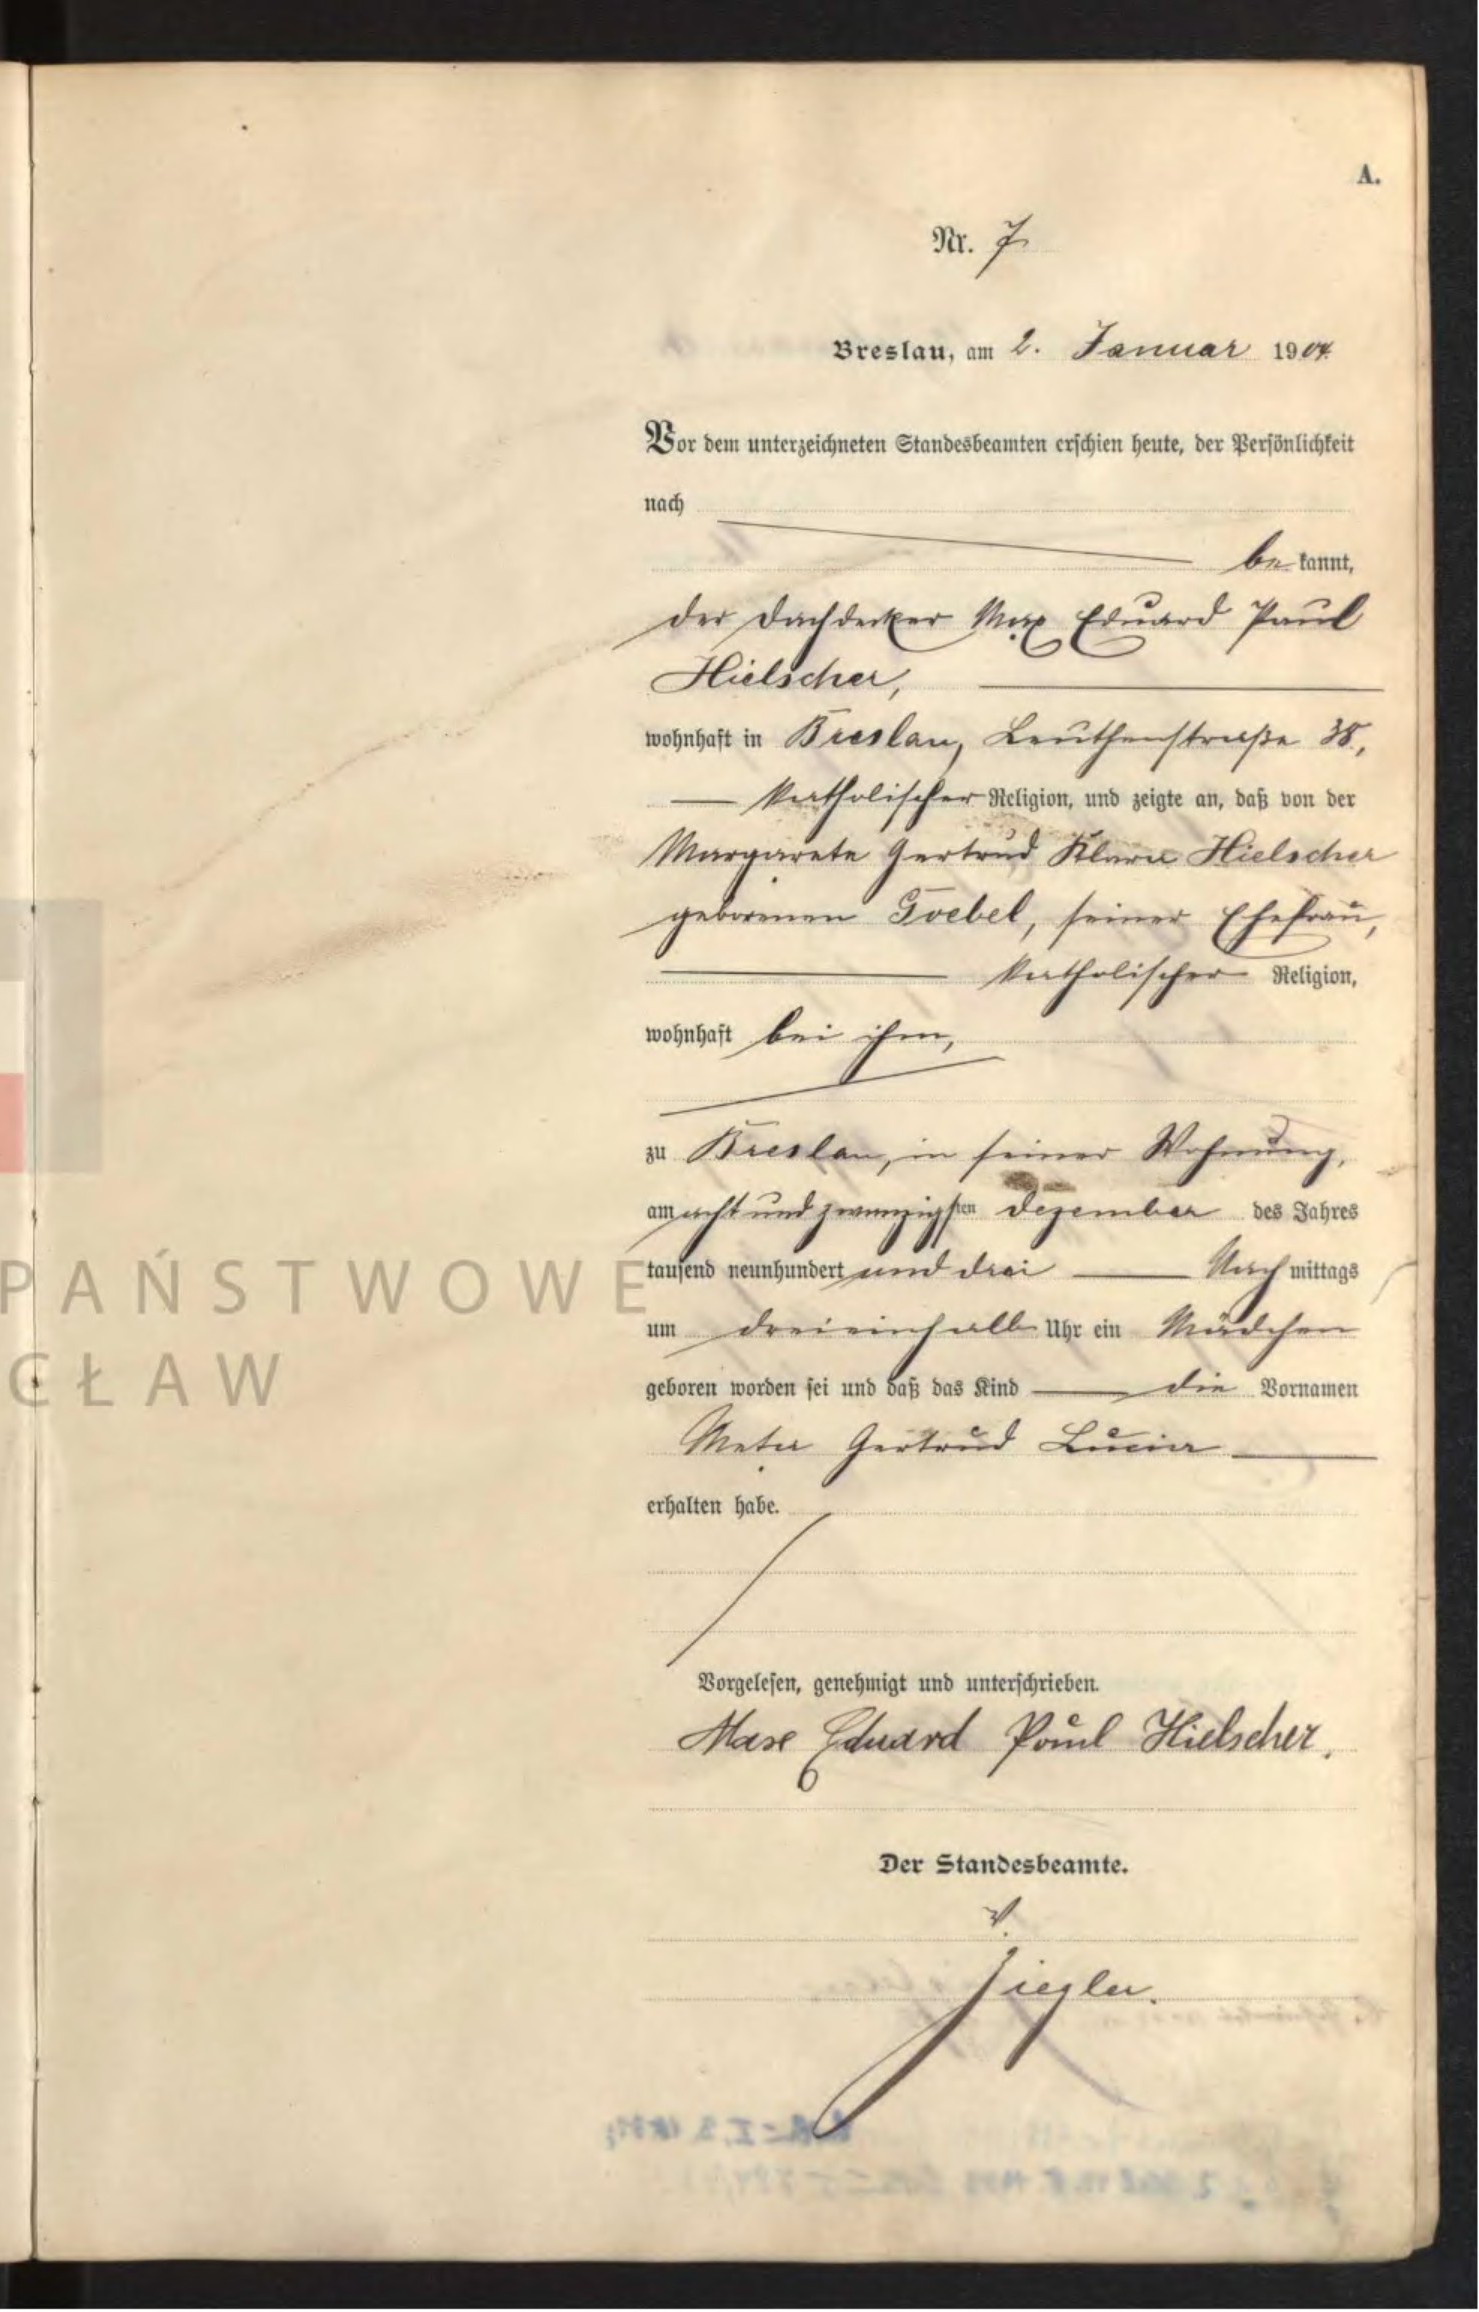 A.
Nr. 7
Breslau, am 2. Januar 1904
Vor dem unterzeichneten Standesbeamten erschien heute, der Persönlichkeit
nach
be kannt,
der Dachdecker Max Eduard Paul
Hielscher,
wohnhaft in Breslau, Leuthenstraße 38,
katholischer Religion, und zeigte an, daß von der
Margarete Gertrud Klara Hielscher
geborenen Goebel, seiner Ehefrau,
katholischer Religion,
wohnhaft bei ihm,
zu Breslau, in seiner Wohnung,
am acht und zwanzigsten Dezember des Jahres
tausend neunhundert und drei Nach mittags
um dreieinhalb Uhr ein Mädchen
geboren worden sei und daß das Kind die Vornamen
Meta Gertrud Lucia
erhalten habe.
Vorgelesen, genehmigt und unterschrieben.
Max Eduard Paul Hielscher.
Der Standesbeamte.
Ziegler.
PAŃSTWOWE
CŁAW